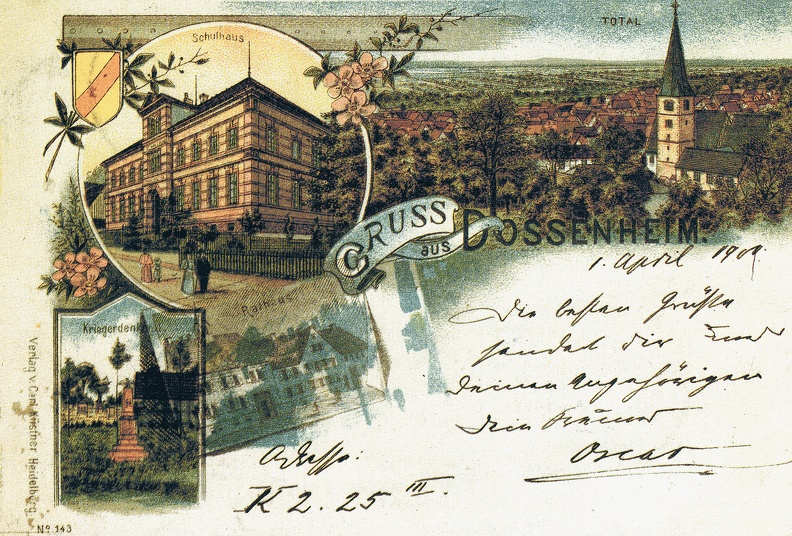 TOTAL
Schulhaus
GRUSS
aus
DOSSENHEIM.
Rathaus
Kriegerdenkmal
1. April 1909
Die besten Grüße
sendet dir und
Deinen Angehörigen
Dein Freund
Oscar
Adresse:
K 2. 25 III.
Verlag v. Carl Küstner Heidelberg.
No 143